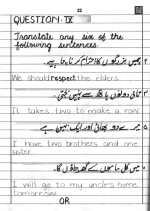 22
QUESTION: IX
Translate any six of the
following sentences.
ہمیں بزرگوں کا احترام کرنا چاہیے۔
We should respect the elders.
It takes two to make a row.
۵ میرے دو بھائی اور ایک بہن ہے
I have two brothers and one
sister
میں کل ماموں کے گھر جاؤں گا۔
I will go to my uncles home
tomorrow.
OR